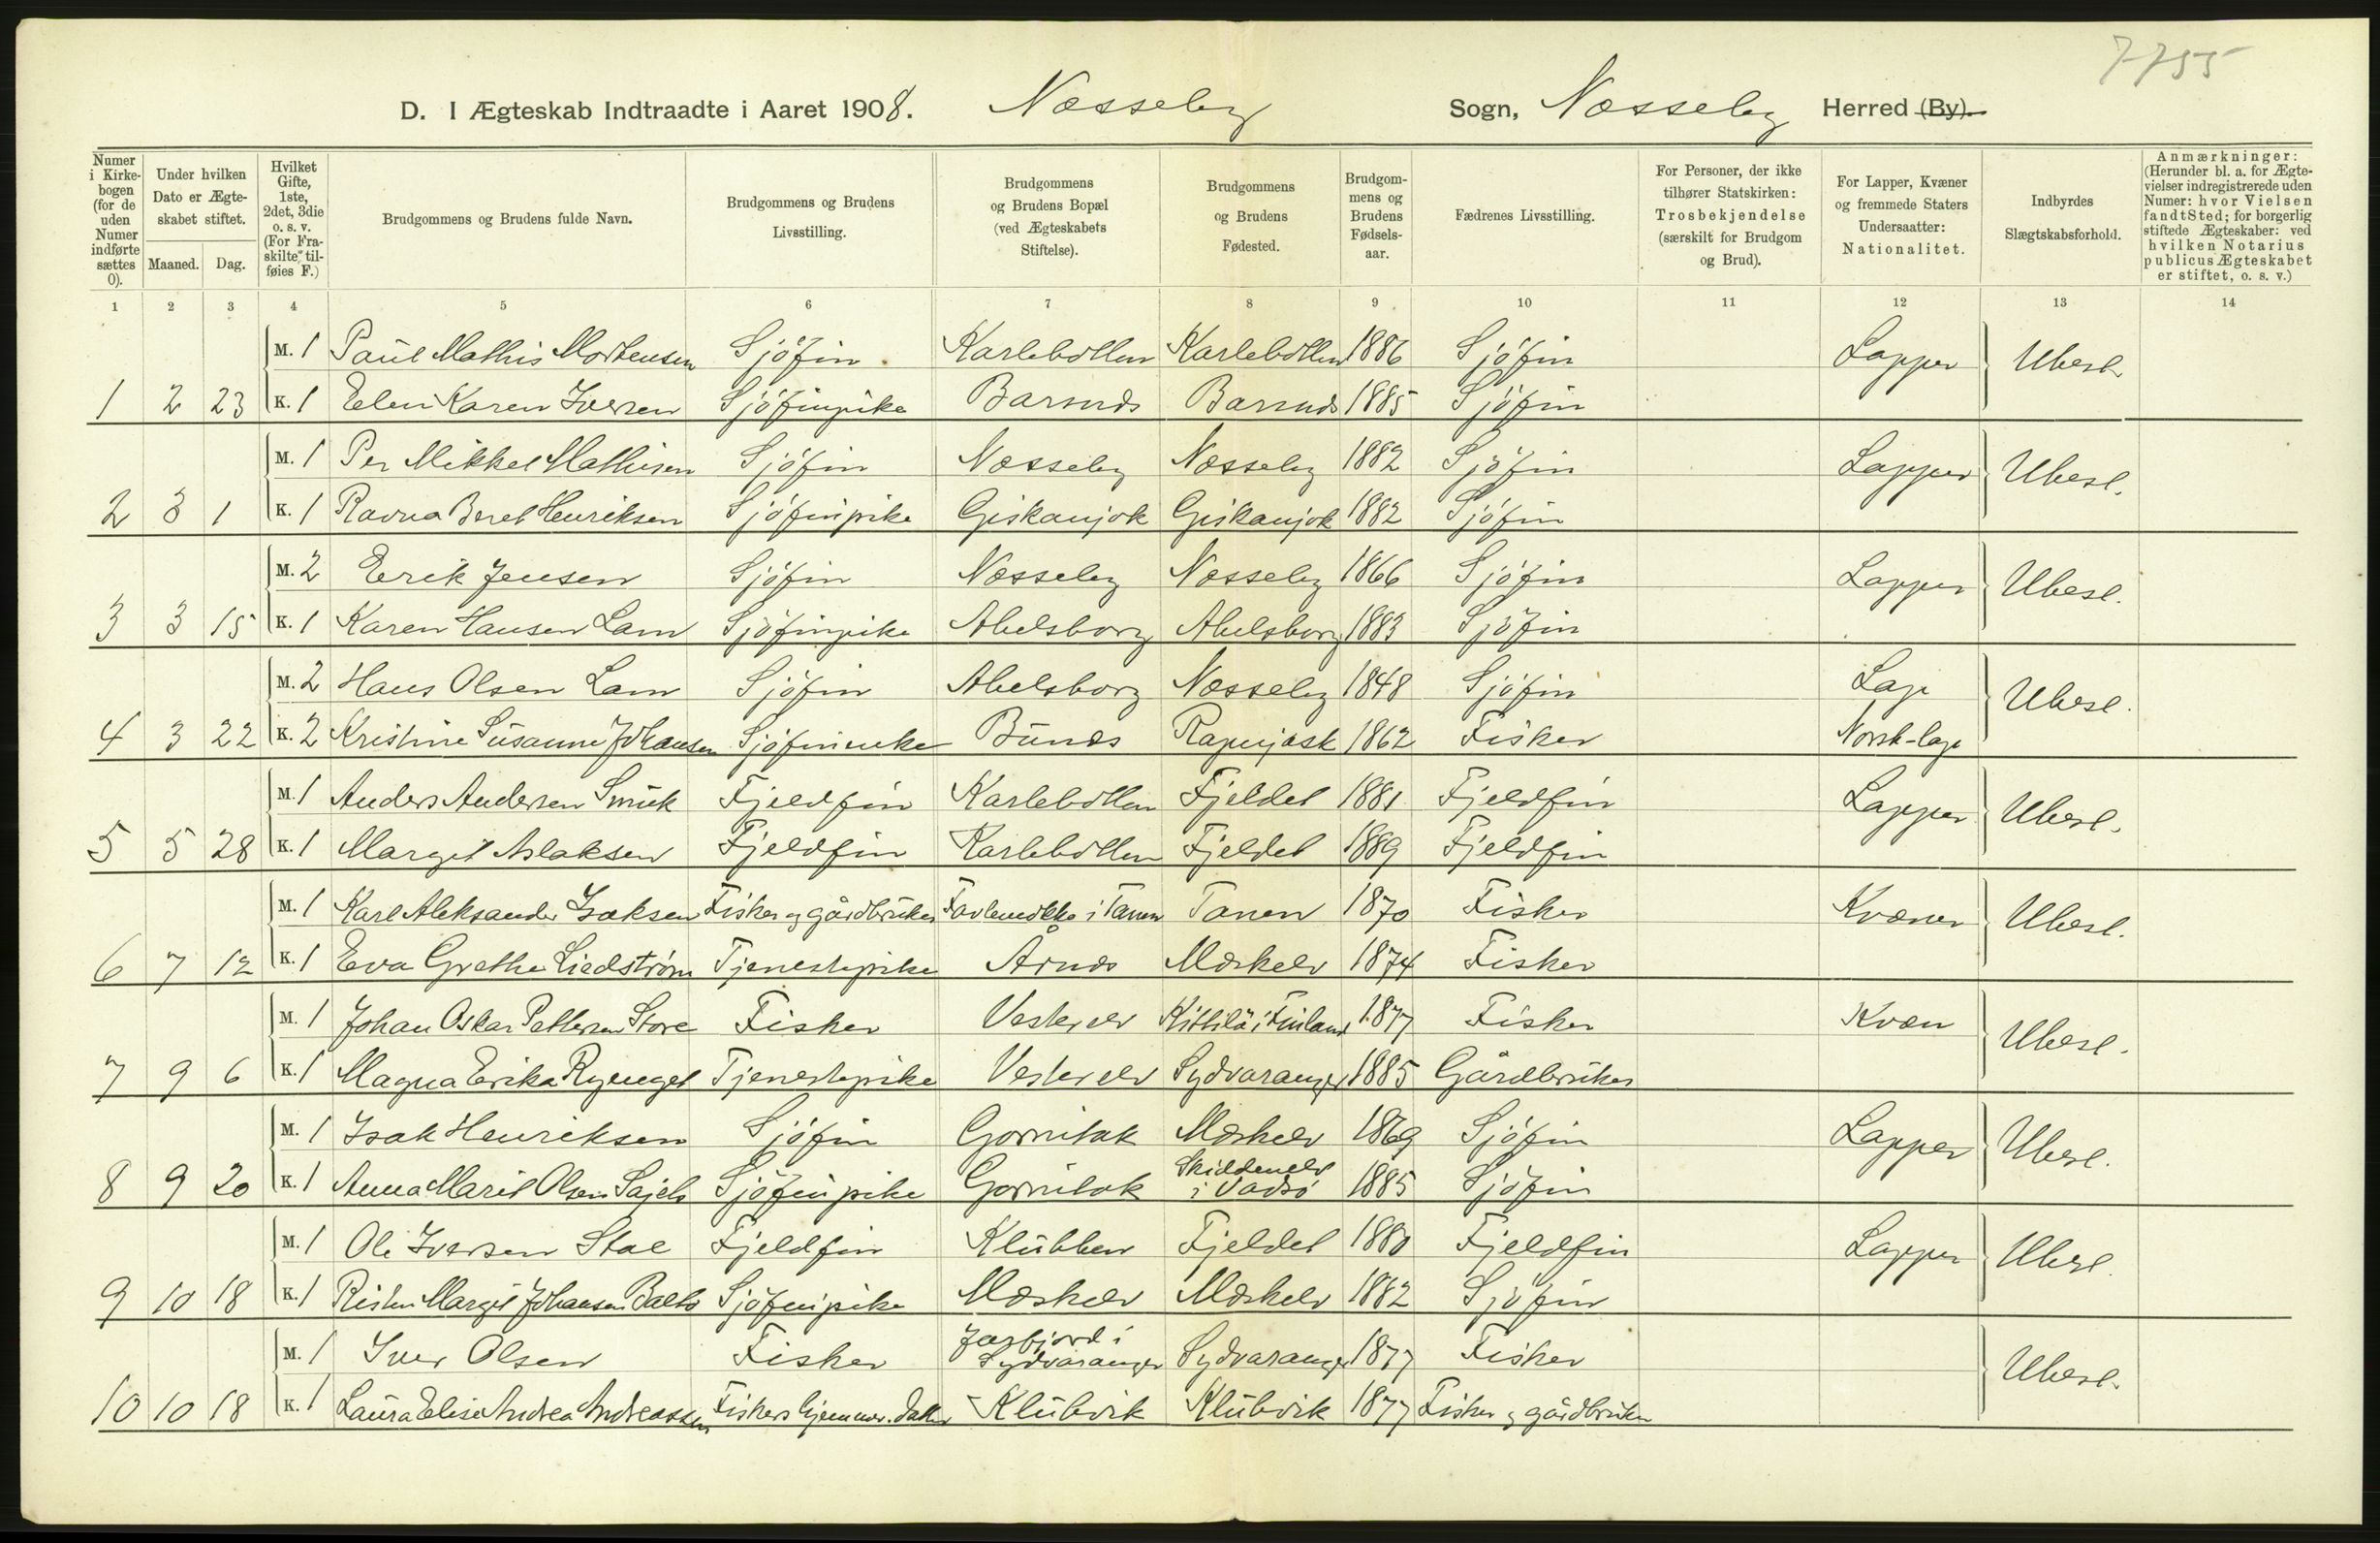 7755
D. I Ægteskab Indtraadte i Aaret 1908. Næsseby Sogn, Næsseby Herred (By).
Numer i Kirkebogen (for de uden Numer indførte sættes 0). | Under hvilken Dato er Ægteskabet stiftet. Maaned. Dag. | Hvilket Gifte, 1ste, 2det, 3die o. s. v. (For Fraskilte tilføies F.) | Brudgommens og Brudens fulde Navn. | Brudgommens og Brudens Livsstilling. | Brudgommens og Brudens Bopæl (ved Ægteskabets Stiftelse). | Brudgommens og Brudens Fødested. | Brudgommens og Brudens Fødselsaar. | Fædrenes Livsstilling. | For Personer, der ikke tilhører Statskirken: Trosbekjendelse (særskilt for Brudgom og Brud). | For Lapper, Kvæner og fremmede Staters Undersaatter: Nationalitet. | Indbyrdes Slægtskabsforhold. | Anmærkninger: (Herunder bl. a. for Ægtevielser indregistrerede uden Numer: hvor Vielsen fandt Sted; for borgerlig stiftede Ægteskaber: ved hvilken Notarius publicus Ægteskabet er stiftet, o. s. v.)
1 2 3 4 5 6 7 8 9 10 11 12 13 14
M. 1 Paul Mathis Mortensen Sjöfin Karlebotten Karlebotten 1886 Sjöfin Lapper Ubesl.
1 2 23 K. 1 Elen Karen Iversen Sjöfinpike Barsnæs Barsnæs 1885 Sjöfin
M. 1 Per Mikkel Mathisen Sjöfin Næsseby Næsseby 1882 Sjöfin Lapper Ubesl.
2 3 1 K. 1 Ravna Beret Henriksen Sjöfinpike Giskanjok Giskanjok 1882 Sjöfin
M. 2 Erik Jensen Sjöfin Næsseby Næsseby 1866 Sjöfin Lapper Ubesl.
3 3 15 K. 1 Karen Hansen Lam Sjöfinpike Abelsborg Abelsborg 1883 Sjöfin
M. 2 Hans Olsen Lam Sjöfin Abelsborg Næsseby 1848 Sjöfin Lap Ubesl.
4 3 22 K. 2 Kristine Susanne Johansen Sjöfinenke Bunæs 1862 Fisker Norsk-lap
M. 1 Anders Andersen Smuk Fjeldfin Karlebotten Fjeldet 1881 Fjeldfin Lapper Ubesl.
5 5 28 K. 1 Margit Aslaksen Fjeldfin Karlebotten Fjeldet 1889 Fjeldfin
M. 1 Karl Aleksander Isaksen Fisker og gårdbruker i Tanen Tanen 1870 Fisker Kvæner Ubesl.
6 7 12 K. 1 Eva Grethe Liedström Tjenestepike Årnæs Mæskelv 1874 Fisker
M. 1 Johan Oskar Pettersen Store Fisker Vesterelv Kittilä i Finland 1877 Fisker Kvæn Ubesl.
7 9 6 K. 1 Magna Erika Ryenget Tjenestepike Vesterelv Sydvaranger 1885 Gårdbruker
M. 1 Isak Henriksen Sjöfin Gornitak Mæskelv 1869 Sjöfin Lapper Ubesl.
8 9 20 K. 1 Anna Marit Olsen Sajets Sjöfinpike Gornitak Skiddenelv i Vadsö 1885 Sjöfin
M. 1 Ole Iversen Stae Fjeldfin Klubben Fjeldet 1880 Fjeldfin Lapper Ubesl.
9 10 18 K. 1 Risten Margit Johansen Balto Sjöfinpike Mæskelv Mæskelv 1882 Sjöfin
M. 1 Iver Olsen Fisker Jarfjord i Sydvaranger Sydvaranger 1877 Fisker Ubesl.
10 10 18 K. 1 Laura Elise Andrea Andreassen Fiskers hjemmev. datter Klubvik Klubvik 1877 Fisker og gårdbruker